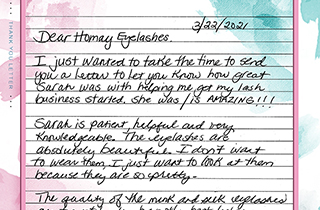 THANK YOU LETTER
3/22/2021
Dear Homay Eyelashes.
I just wanted to take the time to send
you a letter to let you know how great
Sarah was with helping me get my lash
business started. She was / is AMAZING!!!
Sarah is patient, helpful and very
knowledgeable. The eyelashes are
absolutely beautiful. I don't want
to wear them, I just want to look at them
because they are so pretty.
The quality of the mink and silk eyelashes